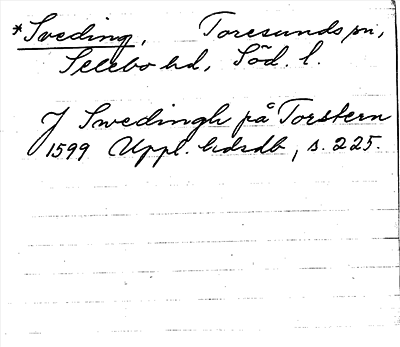 *Sveding, Toresunds sn,
Selebo hd, Söd. l.
J Swedingh på Torstern
1599 Uppl. hdrdb, s. 225.